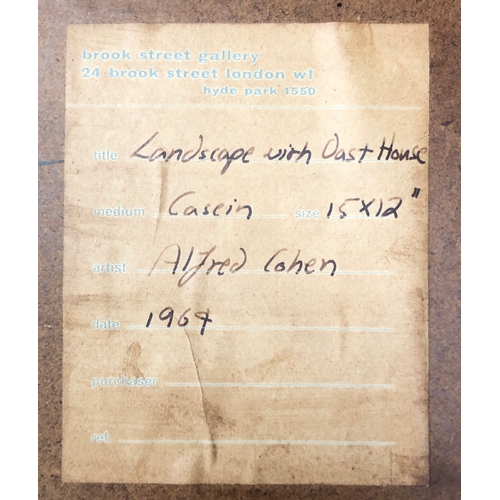 brook street gallery
24 brook street london w1
hyde park 1550
title Landscape with Oast House
medium Casein size 15x12"
artist Alfred Cohen
date 1964
purchaser
ref